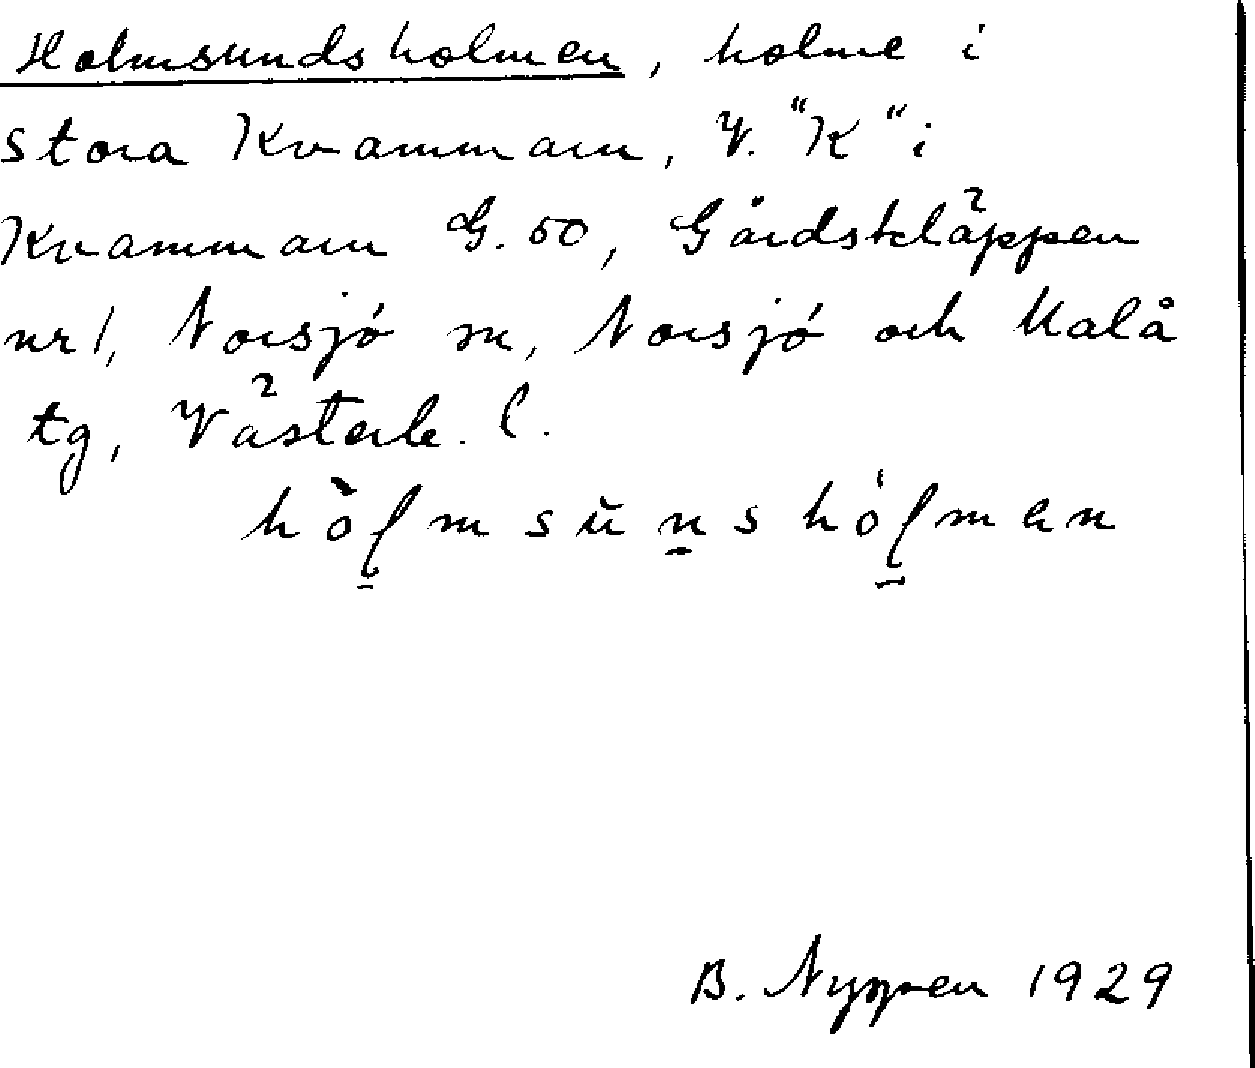 Holmsundsholmen, holme i
stora Kvammarn, V. "K" i
Kvammarn G. 50, Gårdskläppen
nr 1, Norsjö sn, Norsjö och Malå
tg, Västerb. l.
B. Nyppen 1929